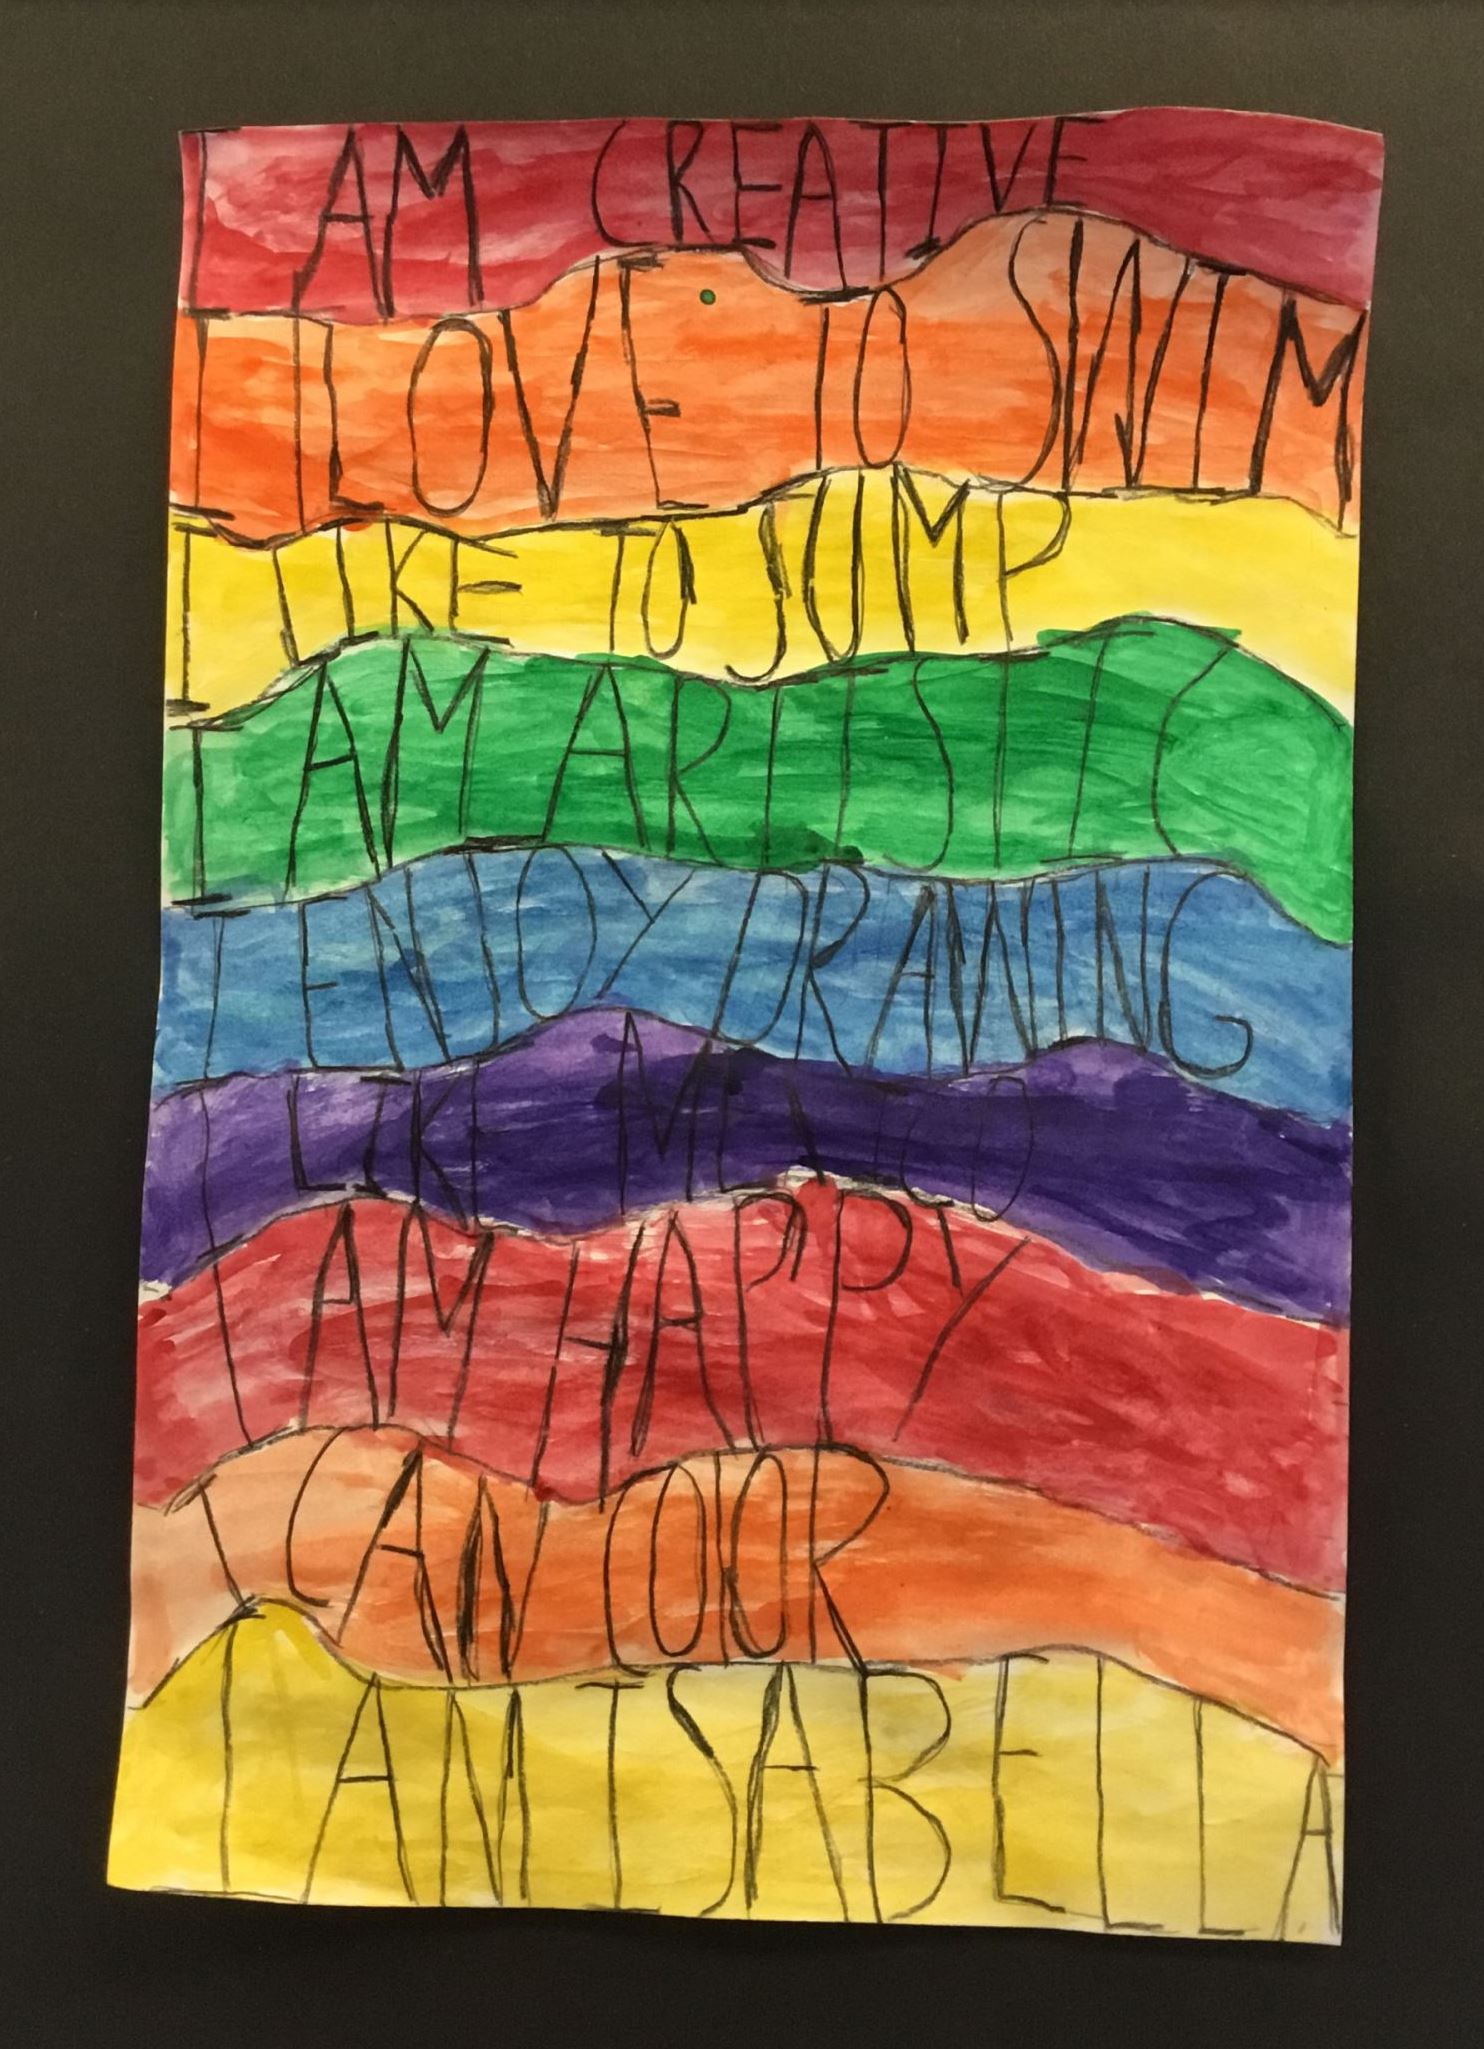 I AM CREATIVE
I LOVE TO SWIM
I LIKE TO JUMP
I AM ARTISTIC
I ENJOY DRAWING
I LIKE
I AM HAPPY
I CAN COLOR
I AM ISABELLA